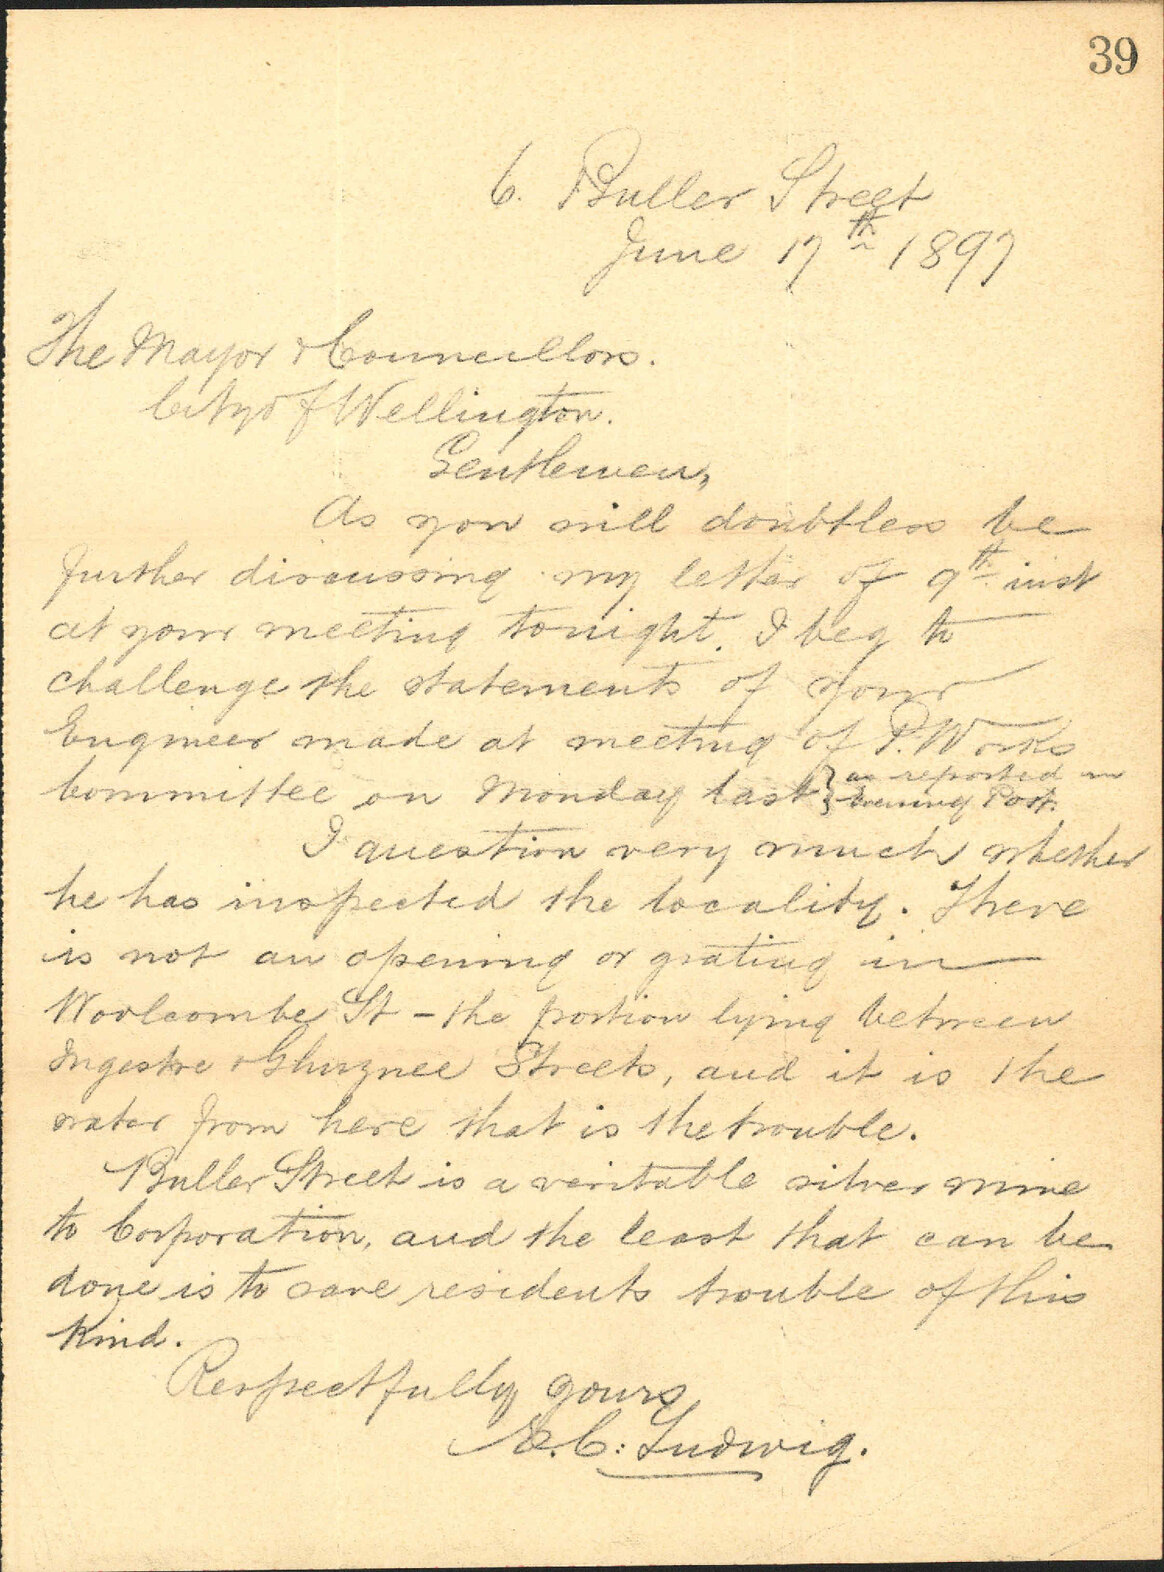 39
6. Buller Street
June 17th 1897
The Mayor & Councillors.
City of Wellington.
Gentlemen,
As you will doubtless be
further discussing my letter of 9th inst
at your meeting tonight. I beg to
challenge the statements of your
Engineer made at meeting of P. Works
Committee on Monday last } as reported in
Evening Post.
I question very much whether
he has inspected the locality. There
is not an opening or grating in
Woolcombe St - the portion lying between
Ingestre & Ghuznee Streets, and it is the
water from here that is the trouble.
Buller Street is a veritable silver mine
to Corporation, and the least that can be
done is to save residents trouble of this
kind.
Respectfully yours
E. C: Ludwig.